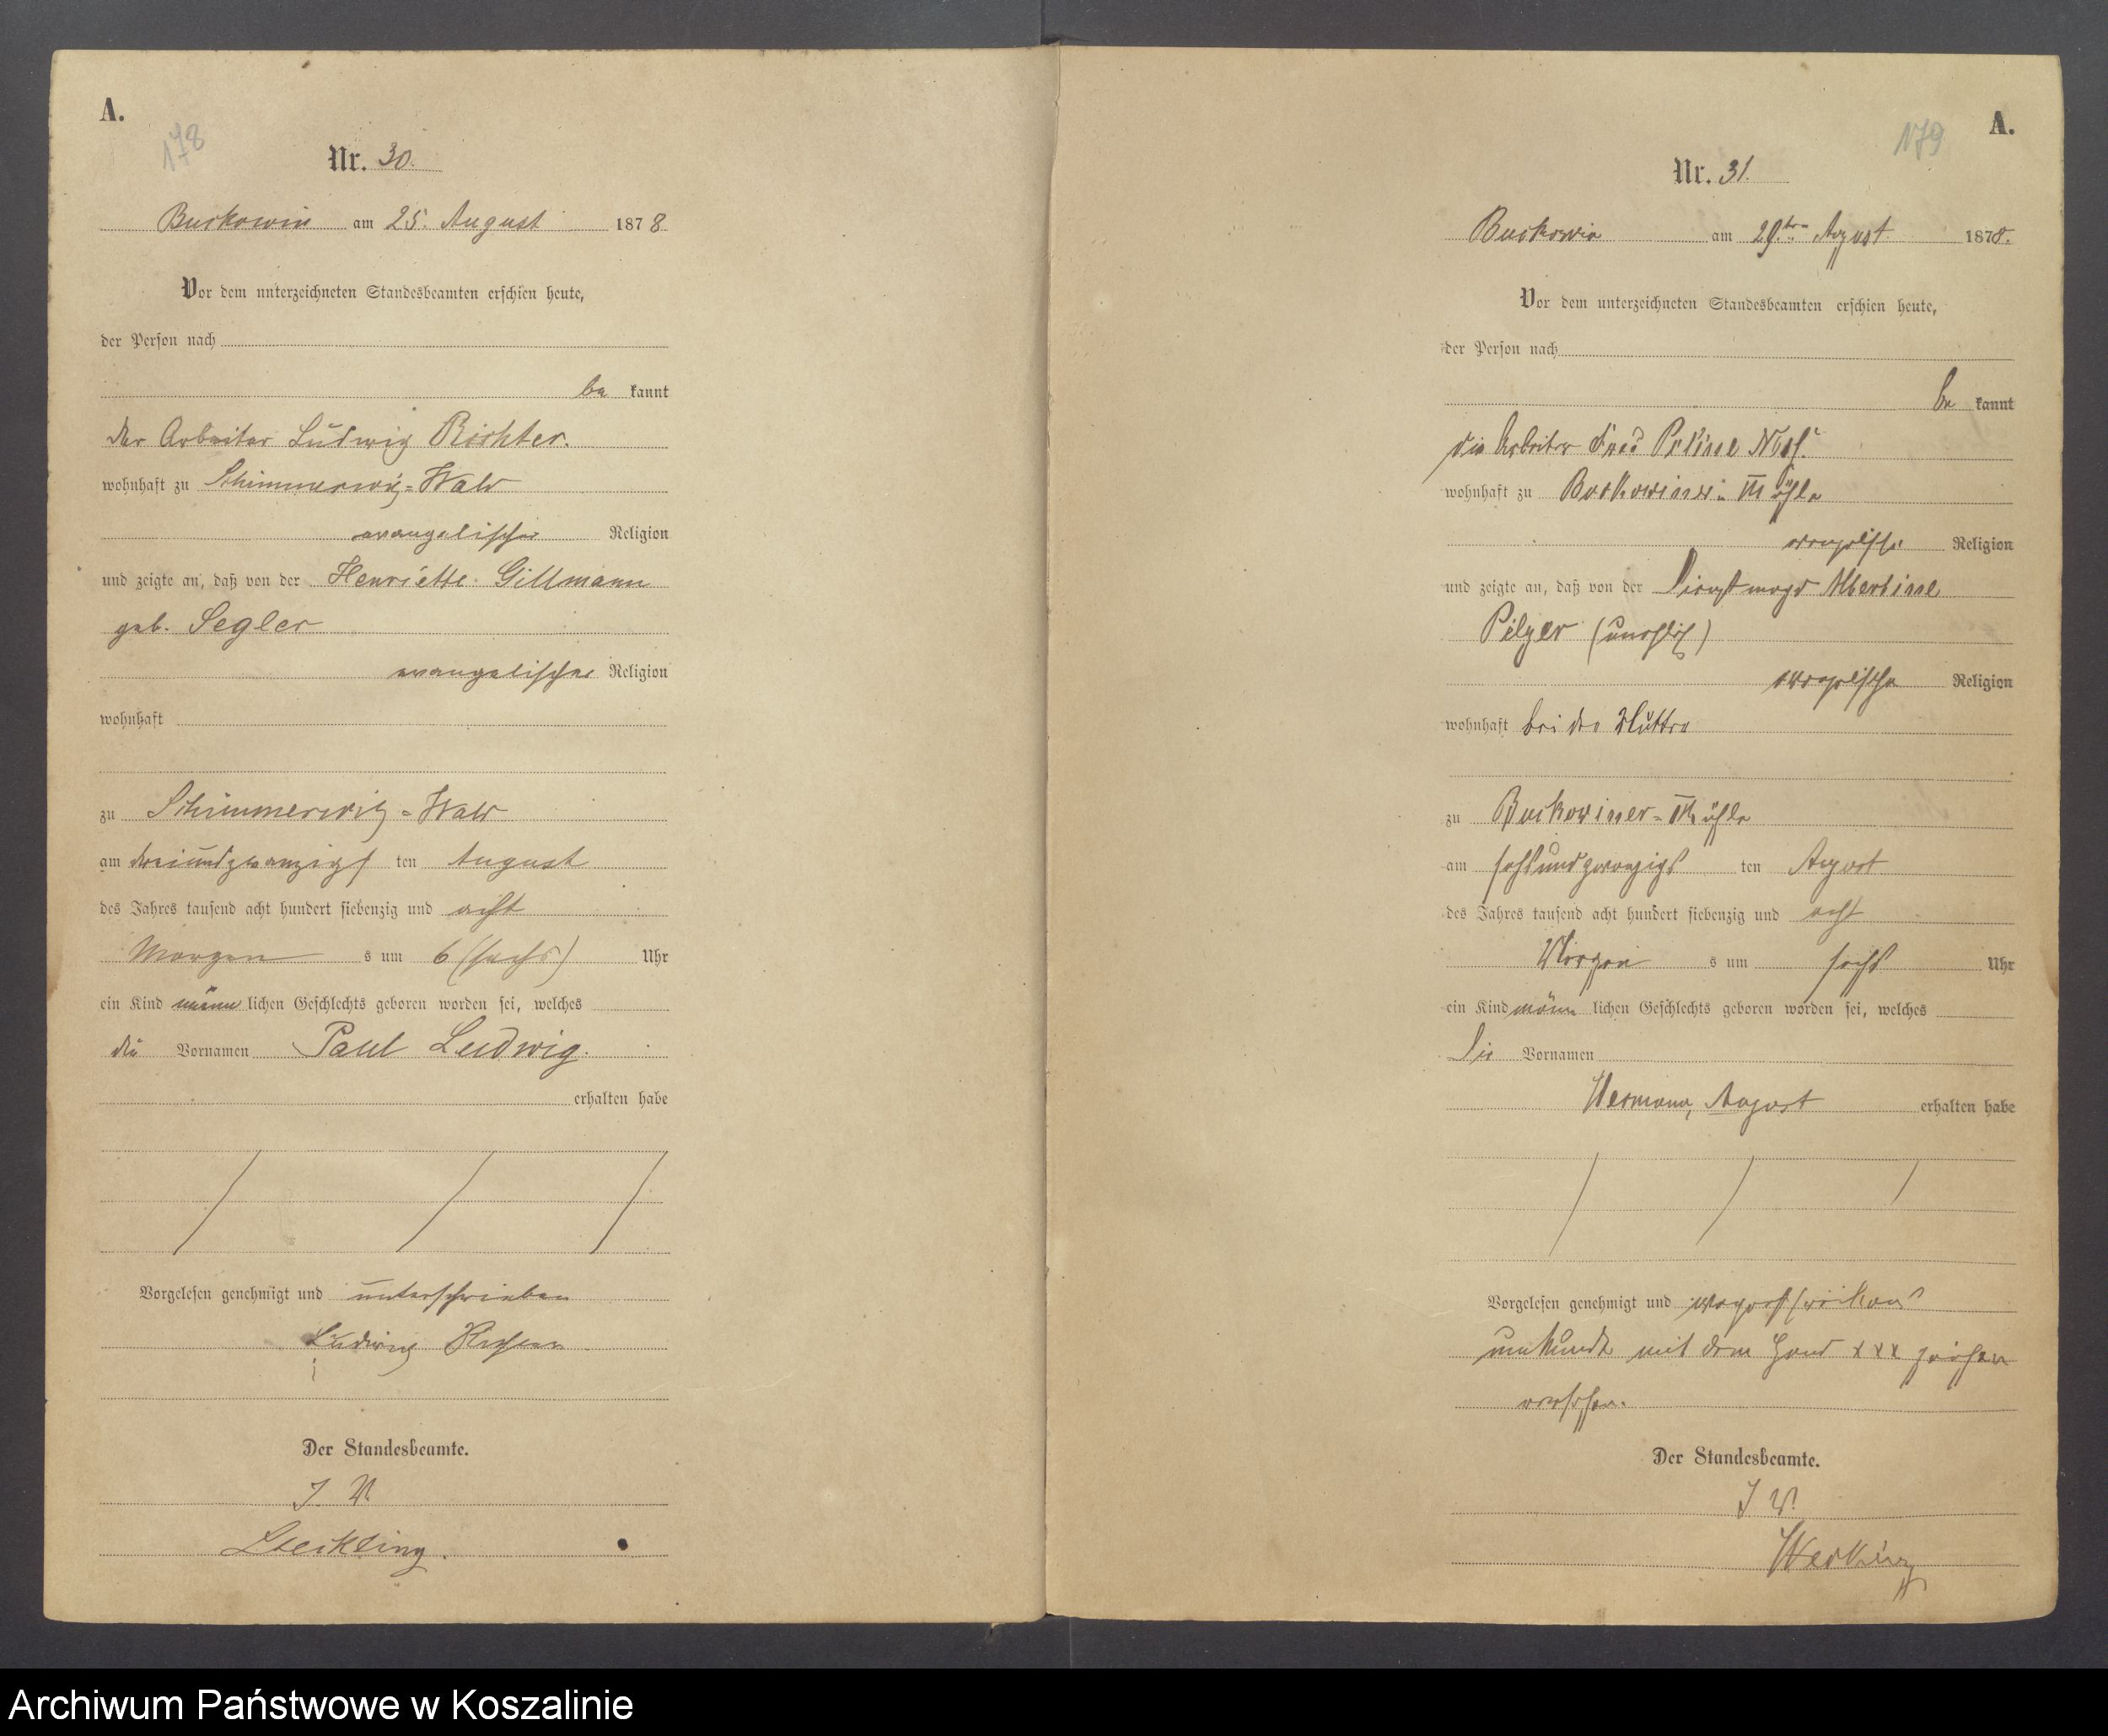 A.
178
Nr. 30.
Buckowin am 25. August 1878
Vor dem unterzeichneten Standesbeamten erschien heute,
der Person nach
be kannt
der Arbeiter Ludwig Richter.
wohnhaft zu Schimmerwitz=Wald
evangelischer Religion
und zeigte an, daß von der Henriette Gillmann
geb. Segler
evangelischer Religion
wohnhaft
zu Schimmerwitz=Wald
am dreiundzwanzigs ten August
des Jahres tausend acht hundert siebenzig und acht
Morgen s um 6 (sechs) Uhr
ein Kind männ lichen Geschlechts geboren worden sei, welches
die Vornamen Paul Ludwig.
erhalten habe
Vorgelesen genehmigt und unterschrieben
Ludwig
Der Standesbeamte.
J. V.
A.
179
Nr. 31.
Buckowin am 29ten August 1878.
Vor dem unterzeichneten Standesbeamten erschien heute,
der Person nach
be kannt
die Arbeiter Frau
wohnhaft zu Buckowiner=Mühle
evangelischer Religion
und zeigte an, daß von der Dienstmagd Albertine
Pilger (unehelich)
evangelischer Religion
wohnhaft bei der Mutter
zu Buckowiner=Mühle
am sechsundzwanzigs ten August
des Jahres tausend acht hundert siebenzig und acht
Morgen s um sechs Uhr
ein Kind männ lichen Geschlechts geboren worden sei, welches
die Vornamen
Hermann, August erhalten habe
Vorgelesen genehmigt und
mit dem Hand xxx zeichen
versehen.
Der Standesbeamte.
J V.
Archiwum Państwowe w Koszalinie